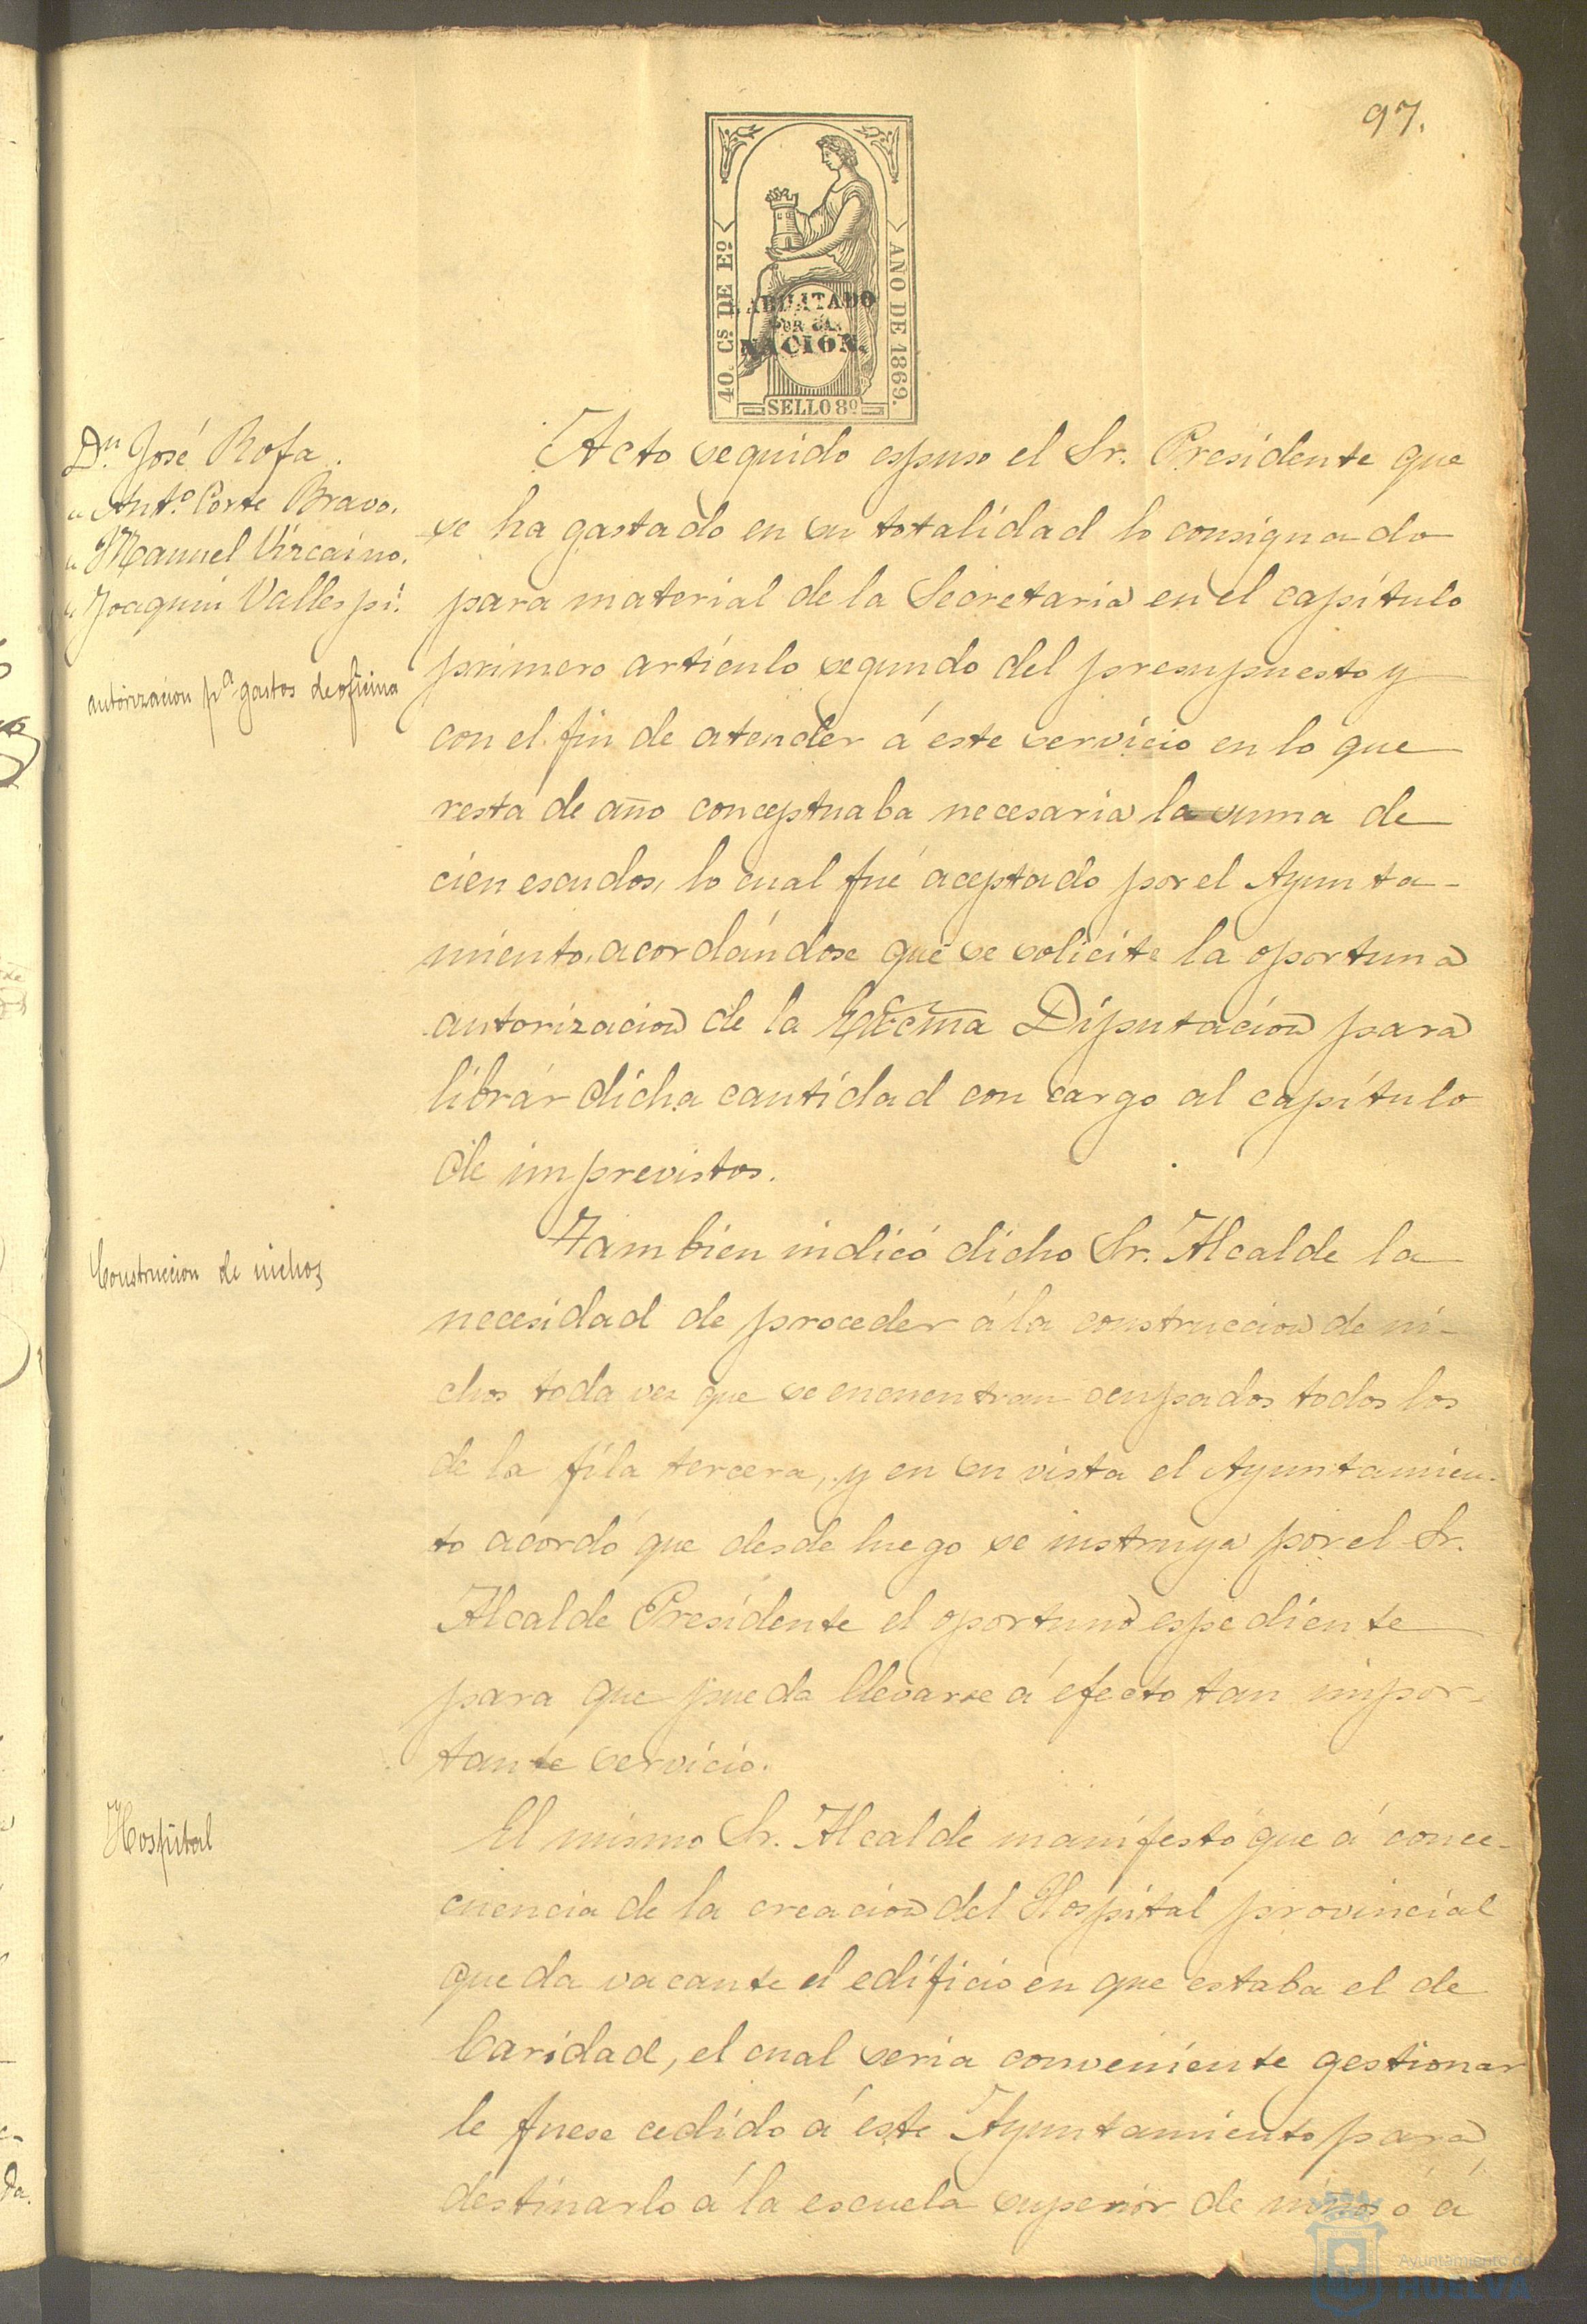 97.
40. Cs DE Eo
AÑO DE 1869.
HABILITADO
POR LA
NACION.
SELLO 8º
Dn. José Rofa.
" Antº. Corte Bravo.
" Manuel Vizcaino.
" Joaquin Vallespi.
autorizacion pª. gastos de oficina
Acto seguido espuso el Sr. Presidente que
se ha gastado en su totalidad lo consignado
para material de la Secretaria en el capítulo
primero artículo segundo del presupuesto y
con el fin de atender á este servicio en lo que
resta de año conceptuaba necesaria la suma de
cien escudos, lo cual fué aceptado por el Ayunta-
miento, acordándose que se solicite la oportuna
autorizacion de la Excma Diputacion para
librar dicha cantidad con cargo al capítulo
de imprevistos.
Construccion de nichos
Tambien indicó dicho Sr. Alcalde la
necesidad de proceder á la construccion de ni-
chos toda vez que se encuentran ocupados todos los
de la fila tercera, y en su vista el Ayuntamien-
to acordó que desde luego se instruya por el Sr.
Alcalde Presidente el oportuno espediente
para que pueda llevarse á efecto tan impor-
tante servicio.
Hospital
El mismo Sr. Alcalde manifestó que á conce-
cuencia de la creacion del Hospital provincial
queda vacante el edificio en que estaba el de
Caridad, el cual seria conveniente gestionar
le fuese cedido á este Ayuntamiento para
destinarlo á la escuela superior de niños ó á
Ayuntamiento de
HUELVA